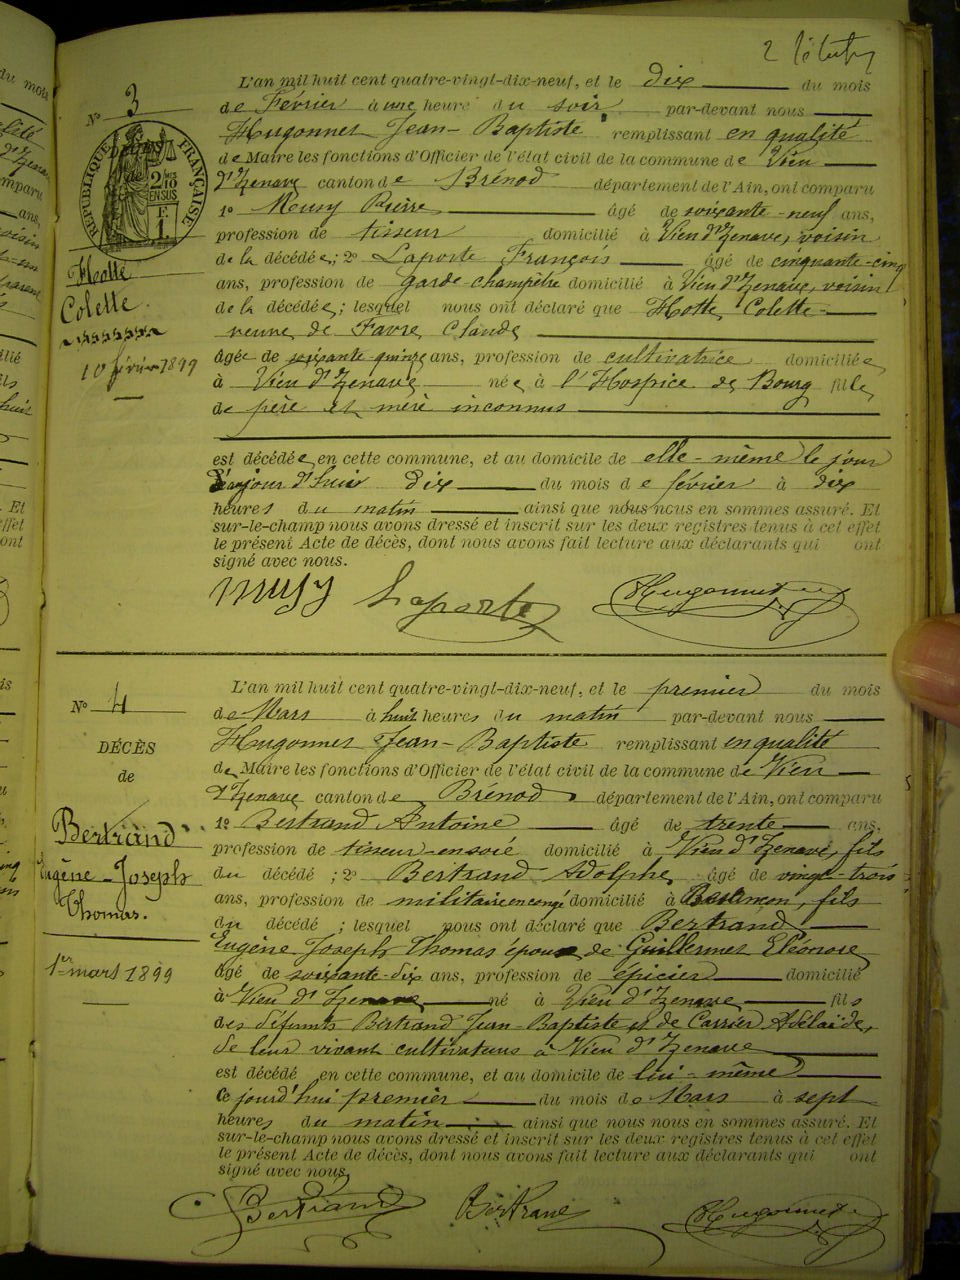 L'an mil huit cent quatre-vingt-dix-neuf, et le dix du mois
de Février à une heure du soir par-devant nous
Hugonnet Jean-Baptiste remplissant en qualité
de Maire les fonctions d'Officier de l'état civil de la commune de Vieu
d'Izenave canton de Brénod département de l'Ain, ont comparu
1º Meusy Pierre âgé de soixante-neuf ans,
profession de tisseur domicilié à Vieu d'Izenave, voisin
de la décédée; 2º Laporte François âgé de cinquante-cinq
ans, profession de garde-champêtre domicilié à Vieu d'Izenave, voisin
de la décédée; lesquel nous ont déclaré que Hotte Colette
veuve de Favre Claude
âgée de soixante-quinze ans, profession de cultivatrice domiciliée
à Vieu d'Izenave née à l'Hospice de Bourg fille
de père et mère inconnus
est décédée, en cette commune, et au domicile de elle-même le jour
d'aujourd'hui dix du mois de février à dix
heures du matin ainsi que nous nous en sommes assuré. Et
sur-le-champ nous avons dressé et inscrit sur les deux registres tenus à cet effet
le présent Acte de décès, dont nous avons fait lecture aux déclarants qui ont
signé avec nous.
Musy Laporte Hugonnet
Nº 3
RÉPUBLIQUE FRANÇAISE
2/10 EN SUS
F. 1.
Hotte
Colette
10 février 1899
L'an mil huit cent quatre-vingt-dix-neuf, et le premier du mois
de Mars à huit heures du matin par-devant nous
Hugonnet Jean-Baptiste remplissant en qualité
de Maire les fonctions d'Officier de l'état civil de la commune de Vieu
d'Izenave canton de Brénod département de l'Ain, ont comparu
1º Bertrand Antoine âgé de trente ans,
profession de tisseur en soie domicilié à Vieu d'Izenave, fils
du décédé; 2º Bertrand Adolphe âgé de vingt-trois
ans, profession de militaire en congé domicilié à Besançon, fils
du décédé; lesquel nous ont déclaré que Bertrand
Eugène Joseph Thomas époux de Guillermet Eléonore
âgé de soixante-dix ans, profession de épicier domicilié
à Vieu d'Izenave né à Vieu d'Izenave fils
des défunts Bertrand Jean-Baptiste et de Carrier Adélaïde,
de leur vivant cultivateurs à Vieu d'Izenave
est décédé en cette commune, et au domicile de lui-même
ce jourd'hui premier du mois de Mars à sept
heures du matin ainsi que nous nous en sommes assuré. Et
sur-le-champ nous avons dressé et inscrit sur les deux registres tenus à cet effet
le présent Acte de décès, dont nous avons fait lecture aux déclarants qui ont
signé avec nous,
Bertrand Bertrand Hugonnet
Nº 4
DÉCÈS
de
Bertrand
Eugène-Joseph
Thomas.
1er mars 1899